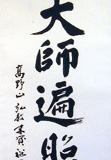 大師遍照
高野山 弘教